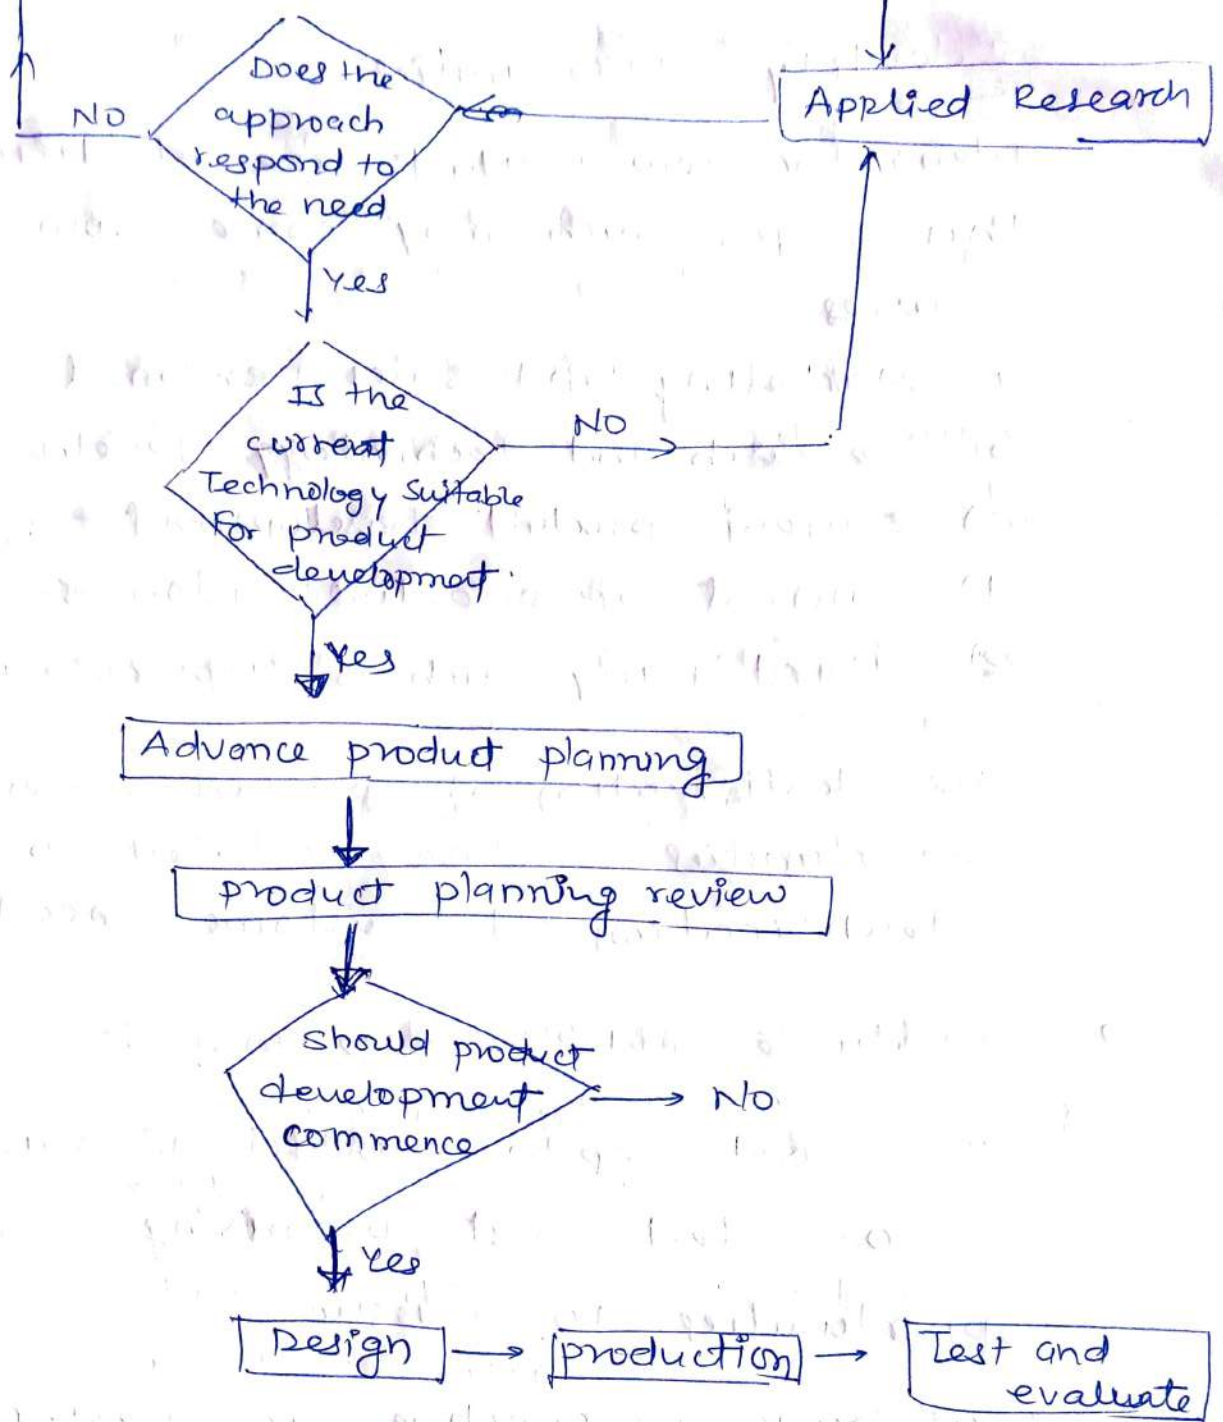 Does the
approach
respond to
the need
NO
Applied Research
Yes
Is the
current
Technology suitable
For product
development.
NO
Yes
Advance product planning
product planning review
should product
development
commence
NO
Yes
Design
production
Test and
evaluate